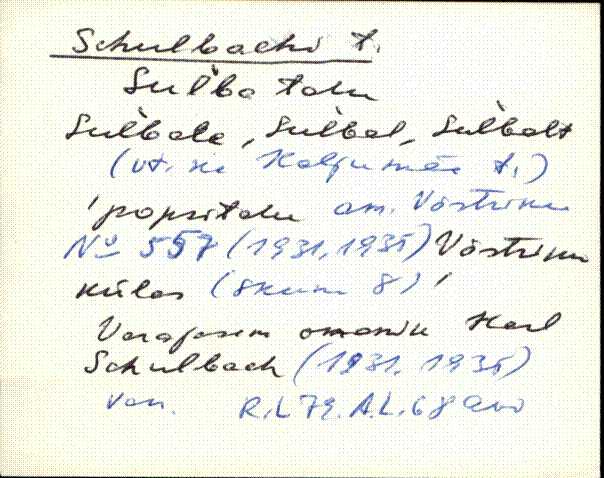 Schulbachi t.
Sul̀ba talu
Sul̀bale, Sul̀bal, Sul̀balt
(vt. ka Kaljumäe t.)
'popsitalu am. Võstriku
№ 557 (1931, 1935) Võstriku
külas (skum 8)'
Varajasem omanik Karl
Schulbach (1931, 1935)
Van. R.L 79. A.L. 68 a.